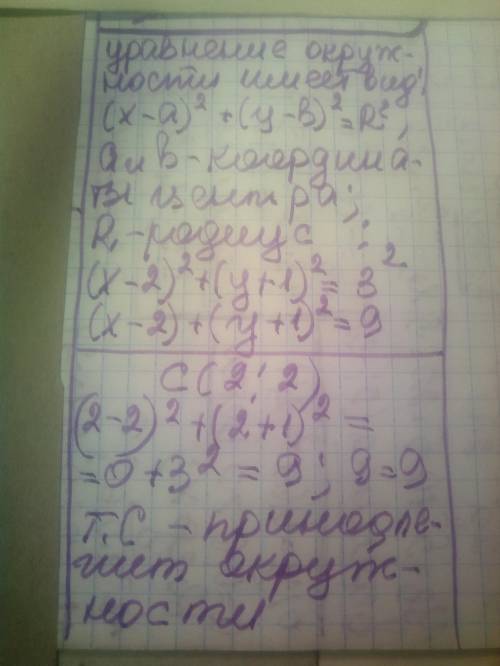 уравнение окруж-
ности имеет вид:
(x-a)² + (y-b)² = R²,
a и b - координа-
ты центра;
R - радиус :
(x-2)² + (y+1)² = 3²
(x-2) + (y+1)² = 9
C (2; 2)
(2-2)² + (2+1)² =
= 0 + 3² = 9; 9=9
т. С - принадле-
жит окруж-
ности